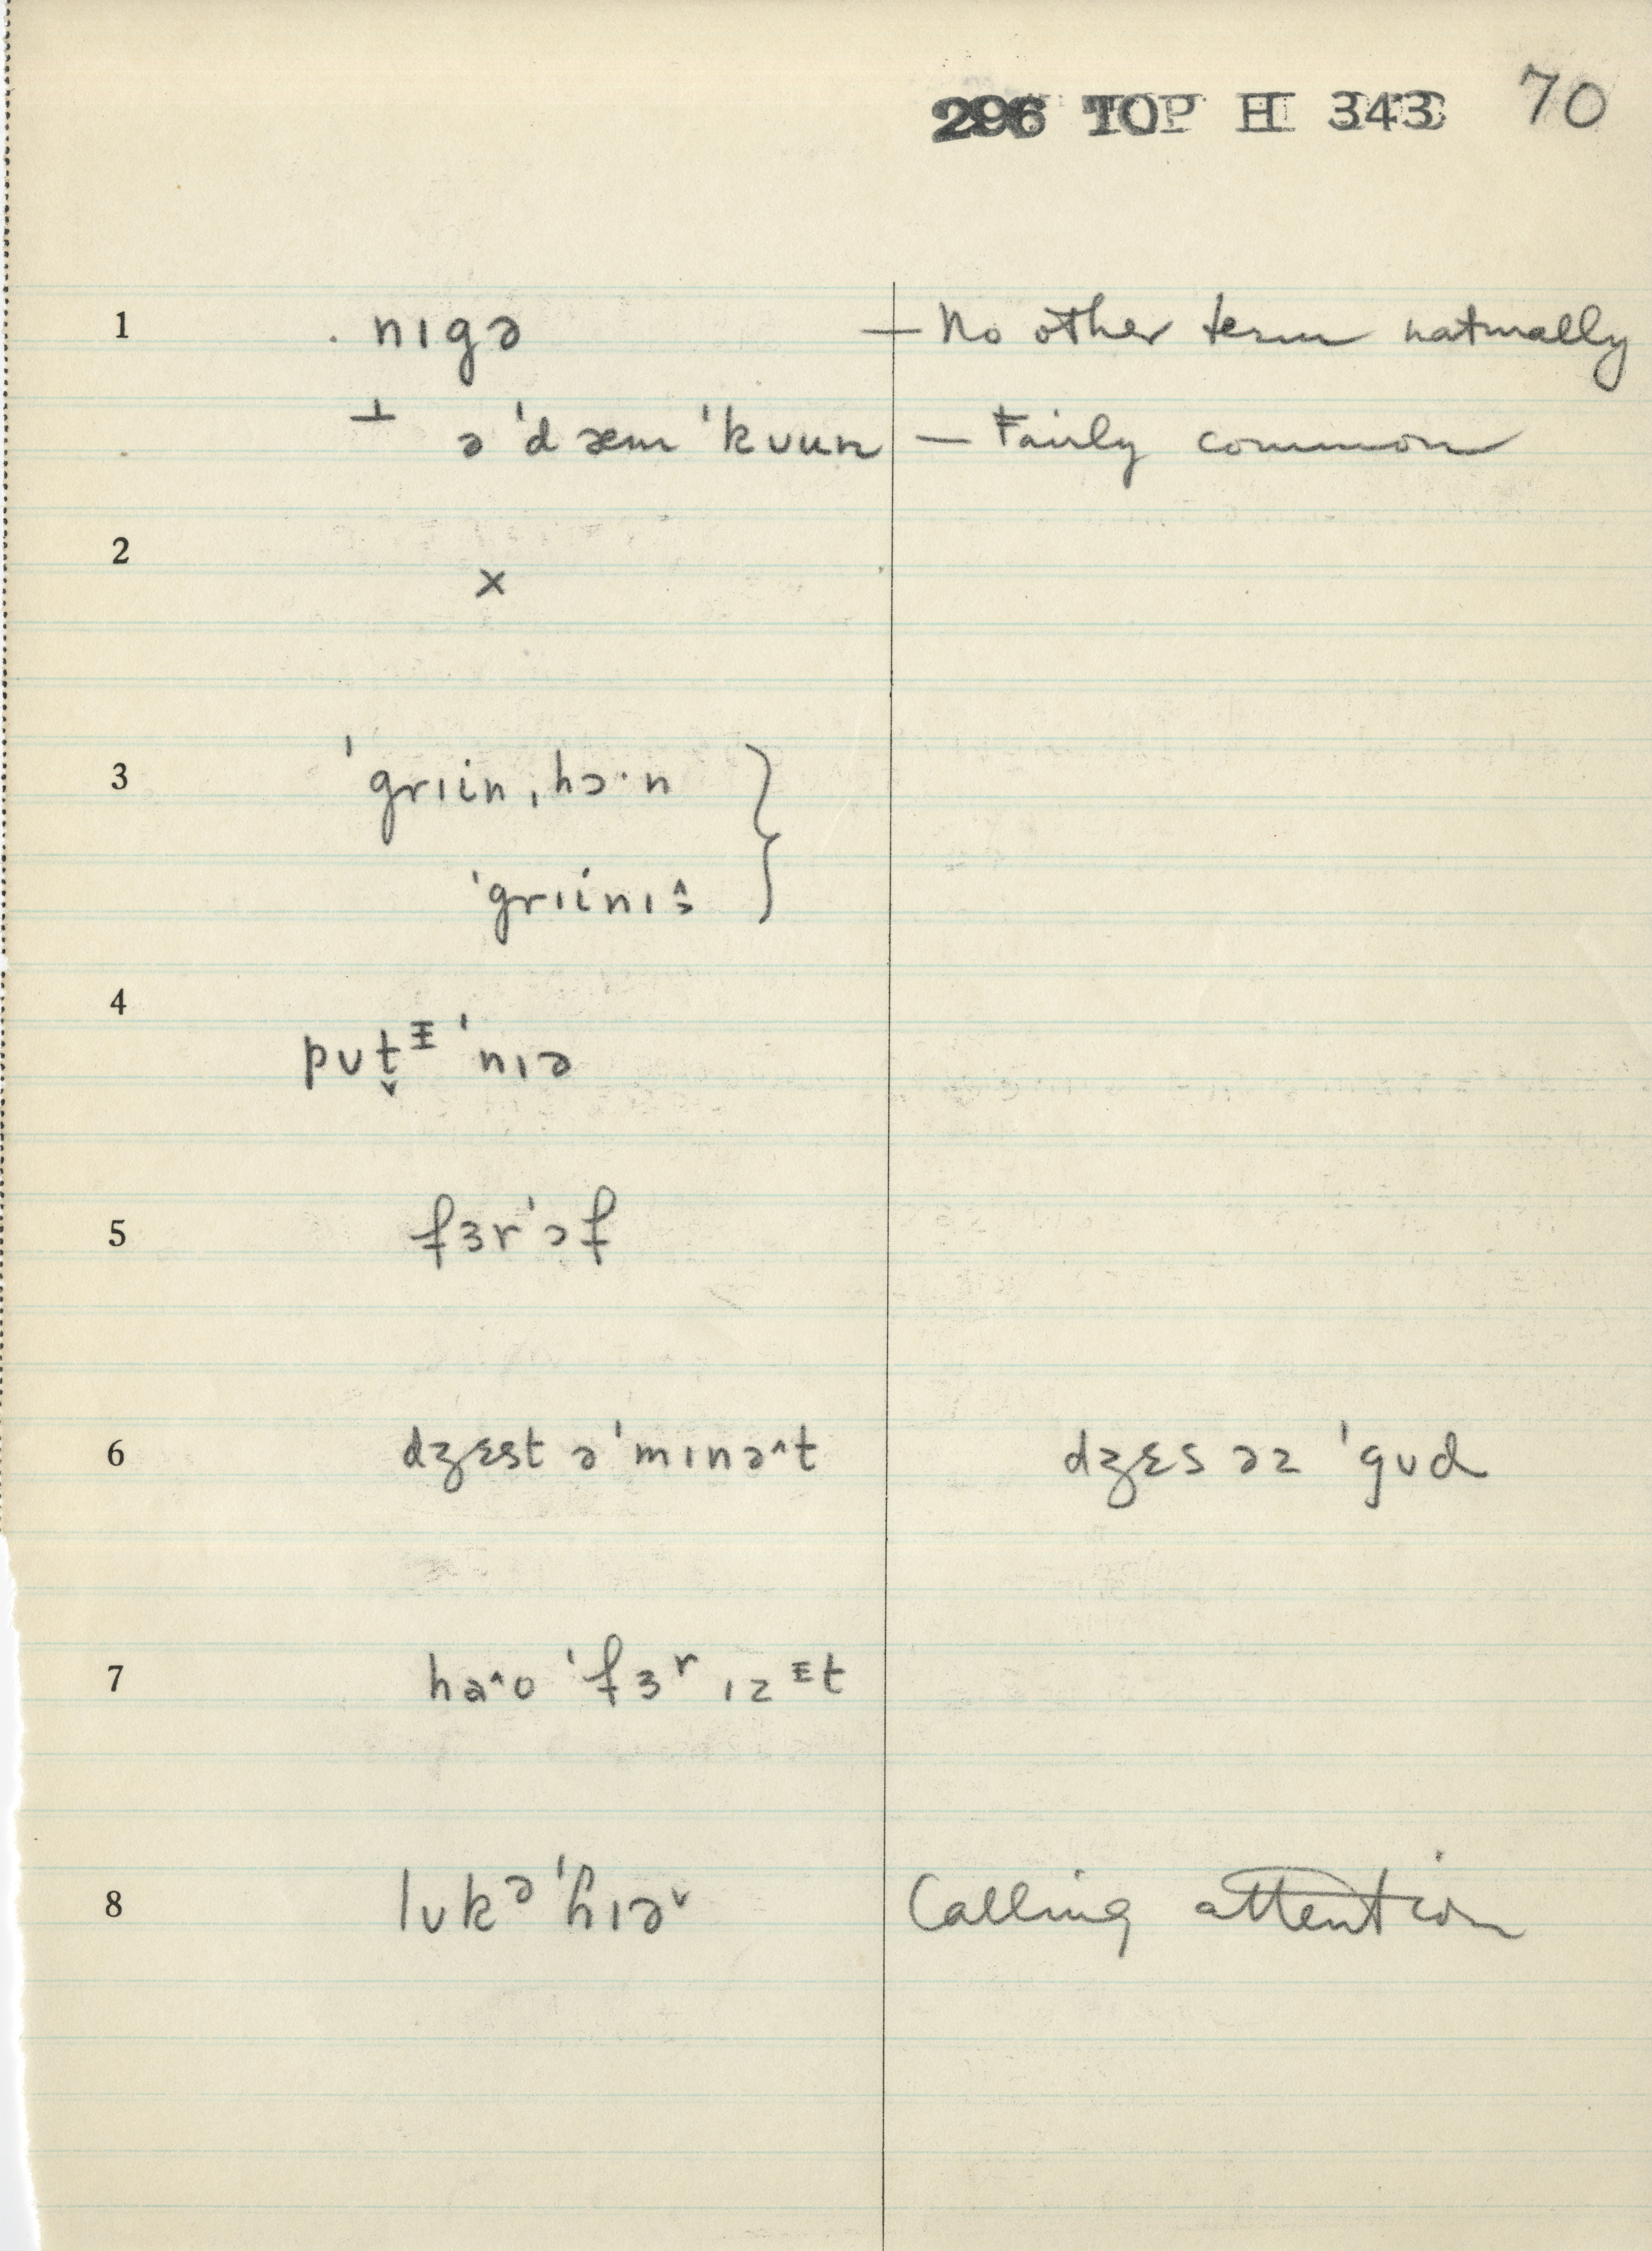 296 TOP H 343 70
1 . nɪgə — No other term naturally
⊥ ə ˈdæm ˈkʊun — Fairly common
2 ×
3 ˈgrɪin ˌhɔ·n }
ˈgrɪinɪ
4 pʊt̬ᵻ ˈnɪə
5 fɜrˈɔf
6 dʒɛst əˈmɪnə^t dʒɛs əz ˈgʊd
7 ha^o ˈfɜʳ ɪz ᵻt
8 lʊkᵊ ˈɦɪəᵛ Calling attention